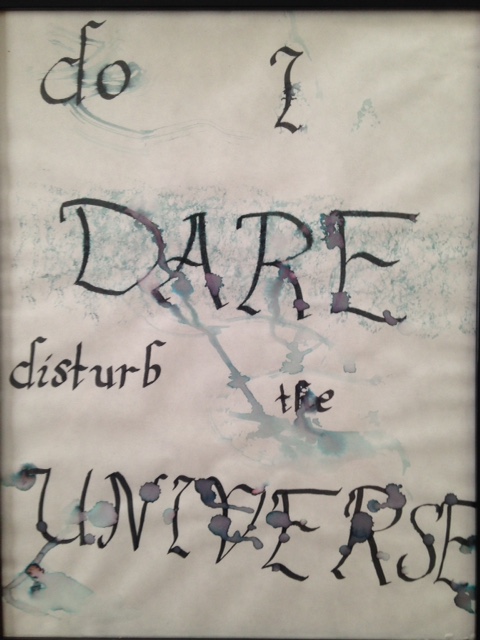 do I
DARE
disturb
the
UNIVERSE